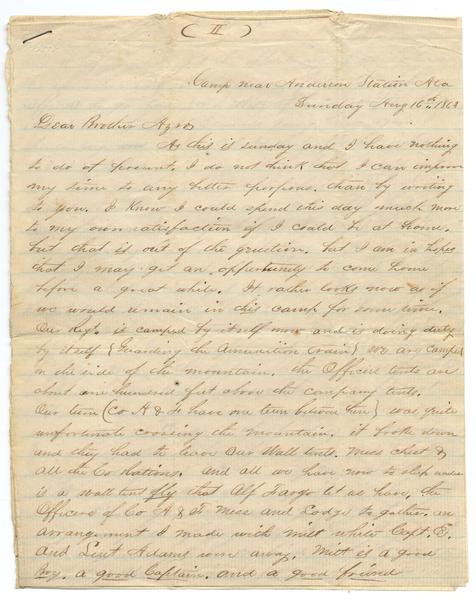 ( II )
Camp near Anderson Station Ala
Sunday Aug 16th 1863
Dear Brother
As this is sunday and I have nothing
to do at present. I do not think that I can improve
my time to any better perpose. than by writing
to you. I know I could spend this day much more
to my own satisfaction if I could be at home.
but that is out of the question. but I am in hopes
that I may get an oppertunity to come home
before a great while. It rather looks now as if
we would remain in this camp for some time.
Our Regt. is camped by itself now and is doing duty
by itself (Guarding the Amunition train) We are camped
on the side of the mountain. the Officers tents are
about one hundred feet above the company tents.
Our team (Co A & F have one team between them) was quite
unfortunate crossing the mountain. it broke down
and they had to leave Our Wall tents. mess chest &
all the Co Rations. and all we have now to sleep under
is a wall tent fly that Alf Fargo let us have. the
Officers of Co A & F Mess and Lodge to gather. an
arrangement I made with milt white Capt. F.
and Lieut Adams were away. Milt is a good
Boy. a good Captain. and a good friend